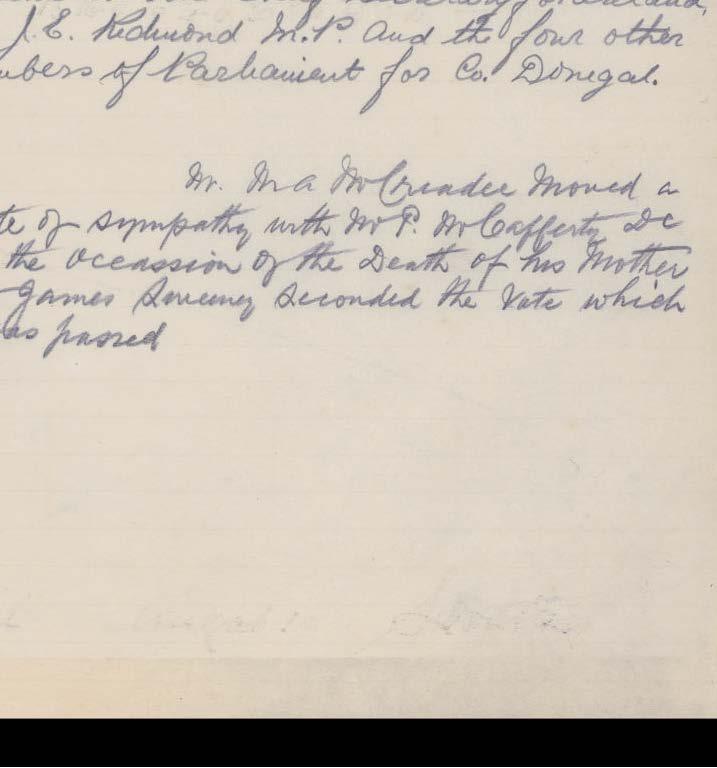 Secretary for Ireland,
J. E. Redmond M.P. and the four other
mbers of Parliament for Co. Donegal.
Mr. M A McCreadee Moved a
te of sympathy with Mr P. McCafferty DC
the occassion of the Death of his Mother
James Sweeney Seconded the Vote which
as passed